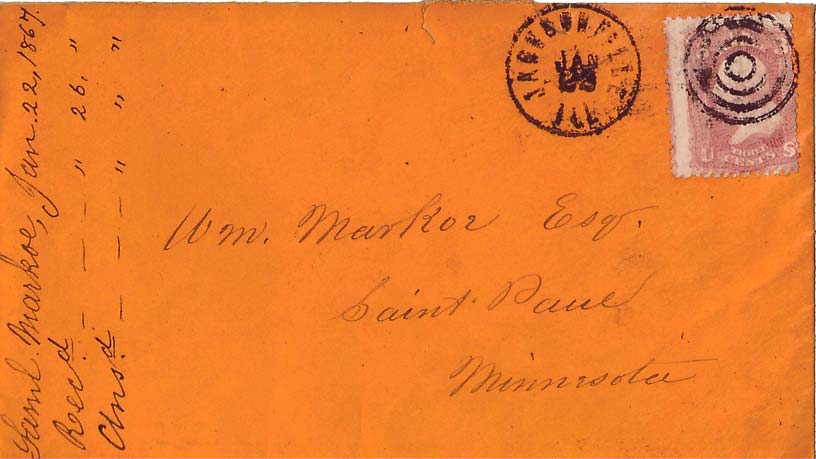 Saml. Markoe, Jan. 22, 1867.
Rec.d — — — " 26, "
Ans.d — — — " " "
JAN
U THREE S
CENTS
Wm. Markoe Esq.
Saint Paul
Minnesota